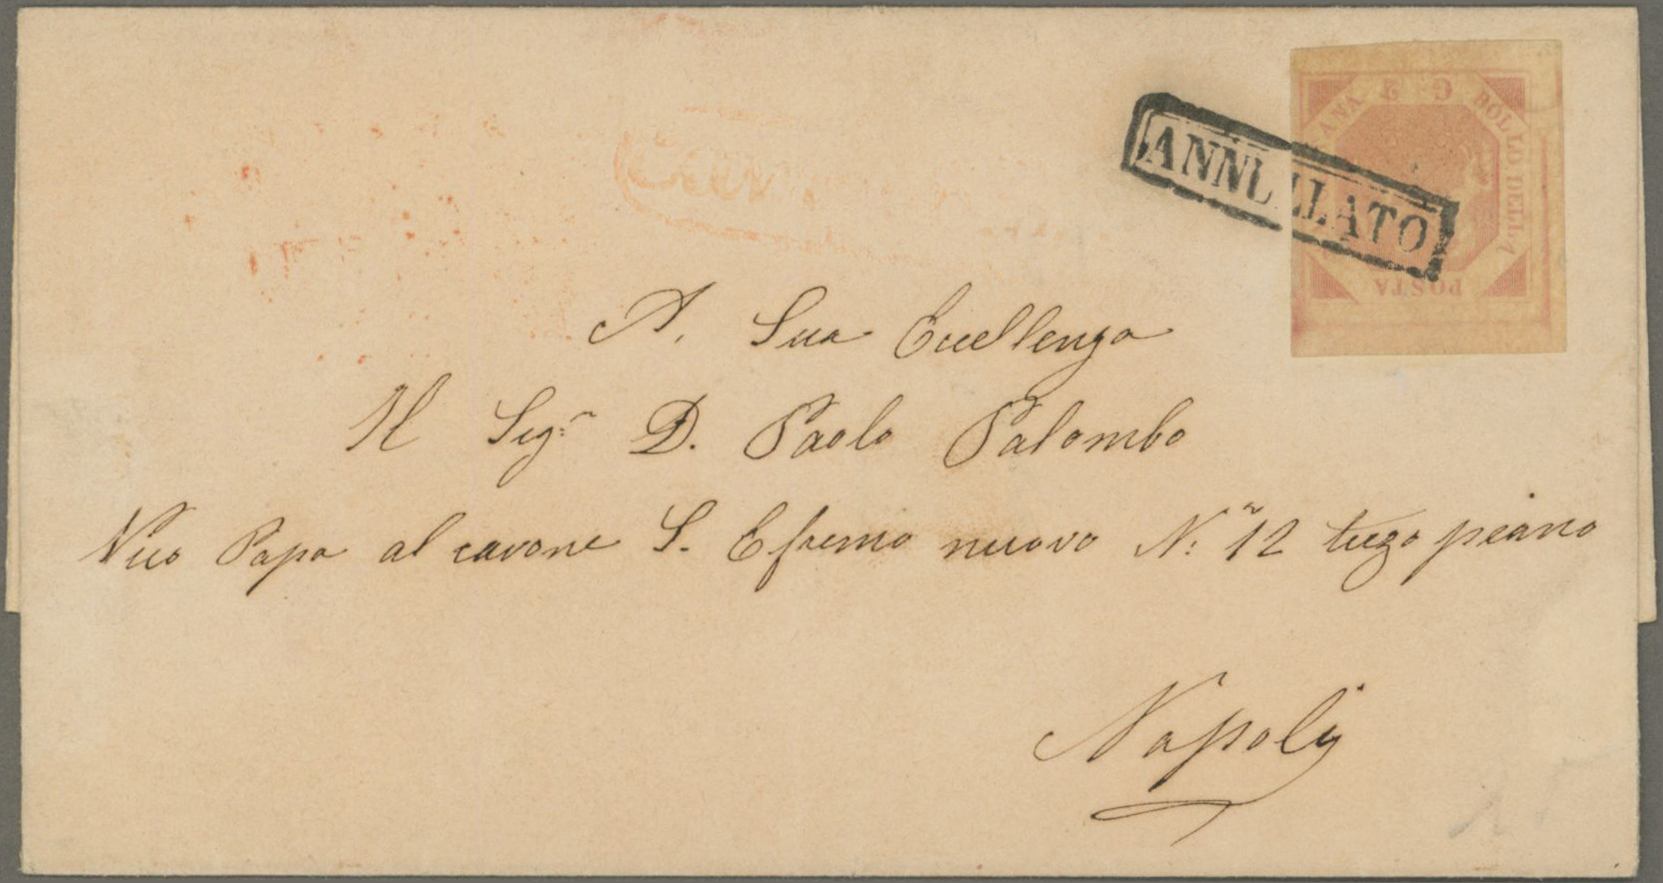 ANNULLATO
G. 2
BOLLO DELLA
POSTA
A. Sua Eccellenza
Il Sigr. D. Paolo Palombo
Vico Papa al cavone S. Efremo nuovo N. 12 terzo piano
Napoli